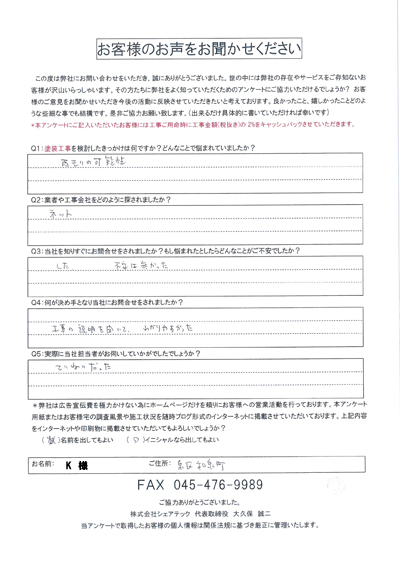 お客様のお声をお聞かせください
この度は弊社にお問い合わせをいただき、誠にありがとうございました。世の中には弊社の存在やサービスをご存知ないお
客様が沢山いらっしゃいます。その方たちに弊社をよく知っていただくためのアンケートにご協力いただけるでしょうか? お客
様のご意見をお聞かせいただき今後の活動に反映させていただきたいと考えております。良かったこと、嬉しかったことどのよう
な些細な事でも結構です。是非ご協力お願い致します。(出来るだけ具体的に書いていただければ幸いです)
*本アンケートにご記入いただいたお客様には工事ご用命時に工事金額(税抜き)の 2%をキャッシュバックさせていただきます。
Q1:塗装工事を検討したきっかけは何ですか?どんなことで悩まれていましたか?
雨もりの可能性
Q2:業者や工事会社をどのように探されましたか?
ネット
Q3:当社を知りすぐにお問合せをされましたか?もし悩まれたとしたらどんなことがご不安でしたか?
した 不安は無かった
Q4:何が決め手となり当社にお問合せをされましたか?
工事の説明を聞いて、わかりやすかった
Q5:実際に当社担当者がお伺いしていかがでしたでしょうか?
ていねいだった
*弊社は広告宣伝費を極力かけない為にホームページだけを頼りにお客様への営業活動を行っております。本アンケート
用紙またはお客様宅の調査風景や施工状況を随時ブログ形式のインターネットに掲載させていただいております。上記内容
をインターネットや印刷物に掲載させていただいてもよろしいでしょうか?
( )名前を出してもよい ( )イニシャルなら出してもよい
お名前: K 様 ご住所:
FAX 045-476-9989
ご協力ありがとうございました。
株式会社シェアテック 代表取締役 大久保 誠二
当アンケートで取得したお客様の個人情報は関係法規に基づき厳正に管理いたします。